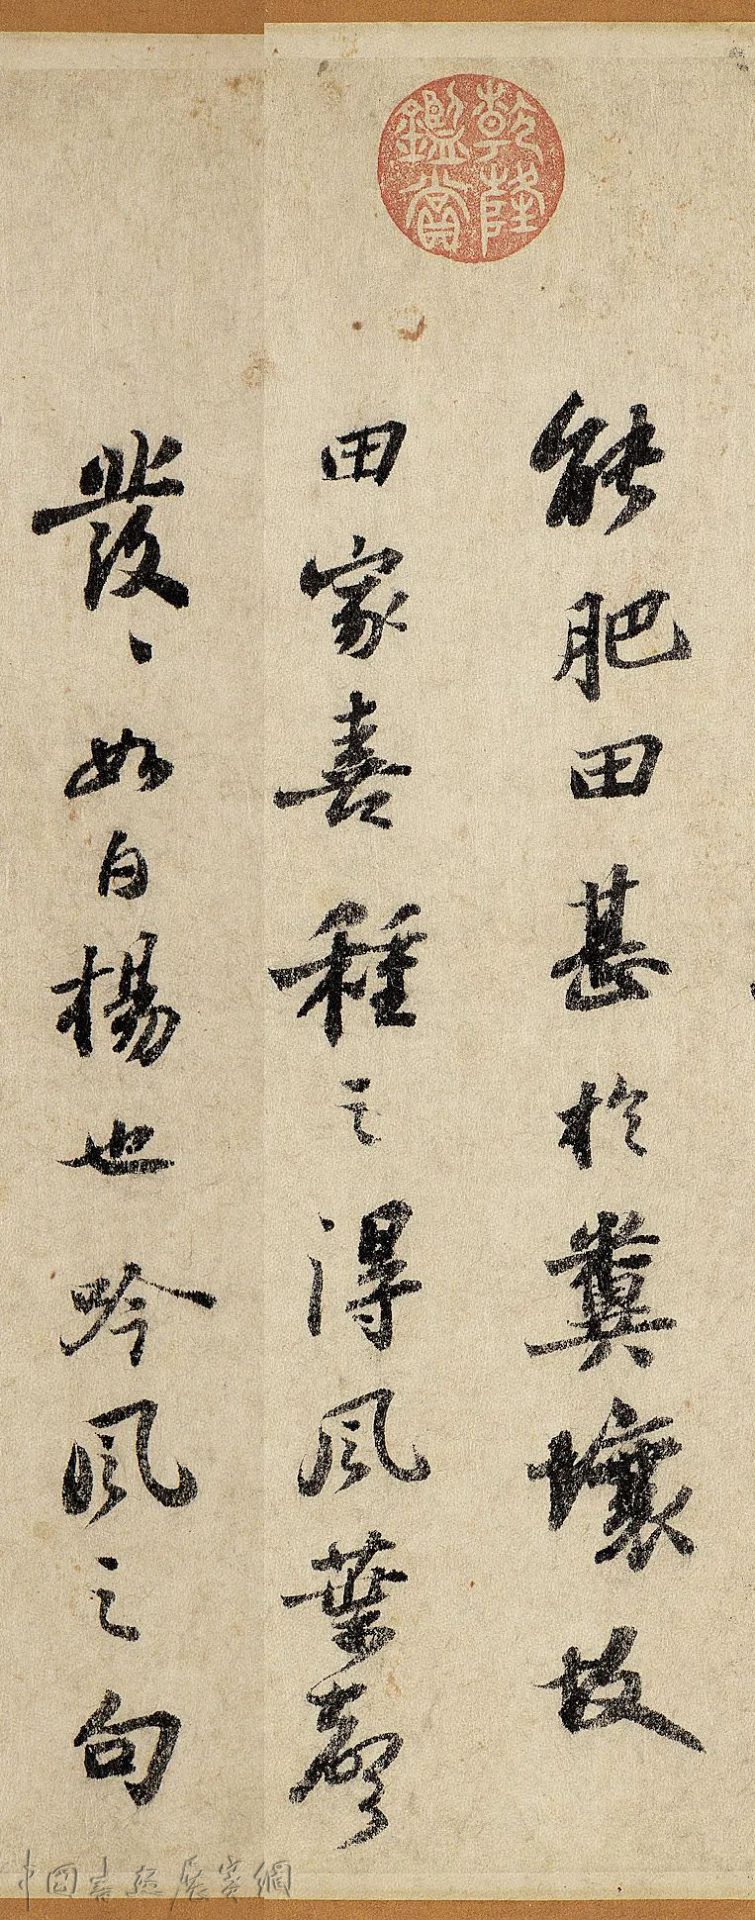 乾隆
鑑賞
能肥田甚於糞壤故
田家喜種之得風葉聲
發〻如白楊也吟風之句
中國書法展賽網